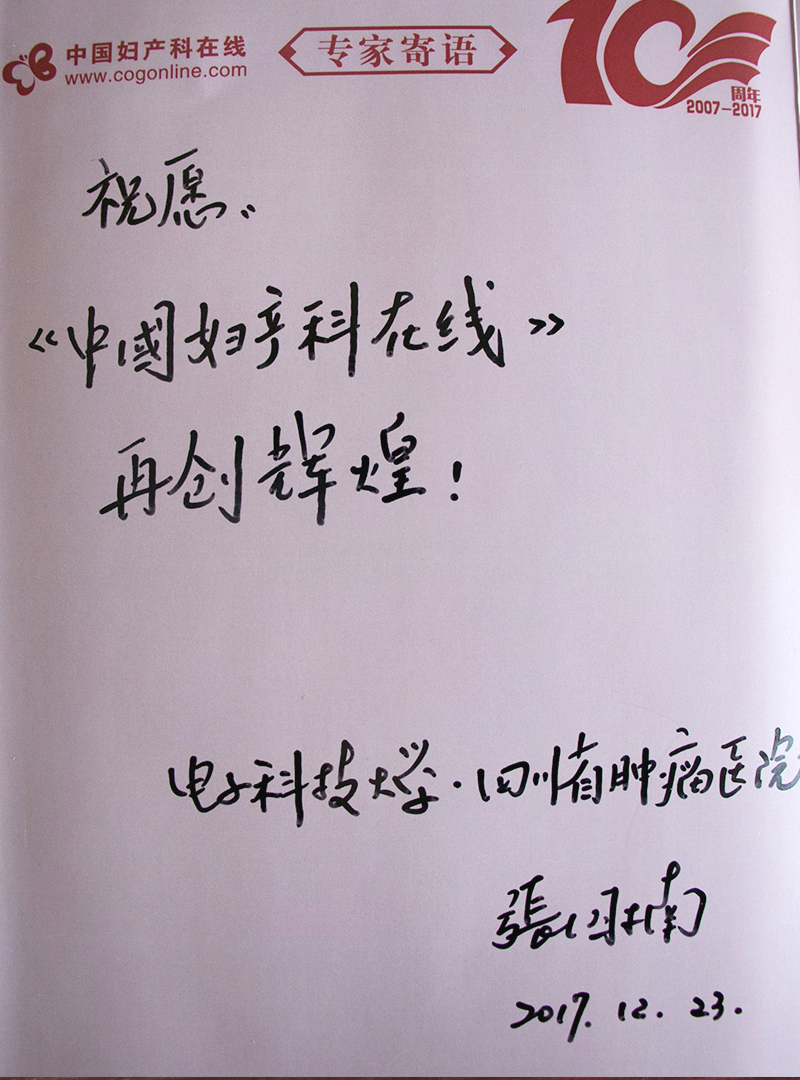 中国妇产科在线
www.cogonline.com
专家寄语
10
周年
2007-2017
祝愿:
《中國妇产科在线》
再创辉煌！
电子科技大学·四川省肿瘤医院
張国楠
2017.12.23.